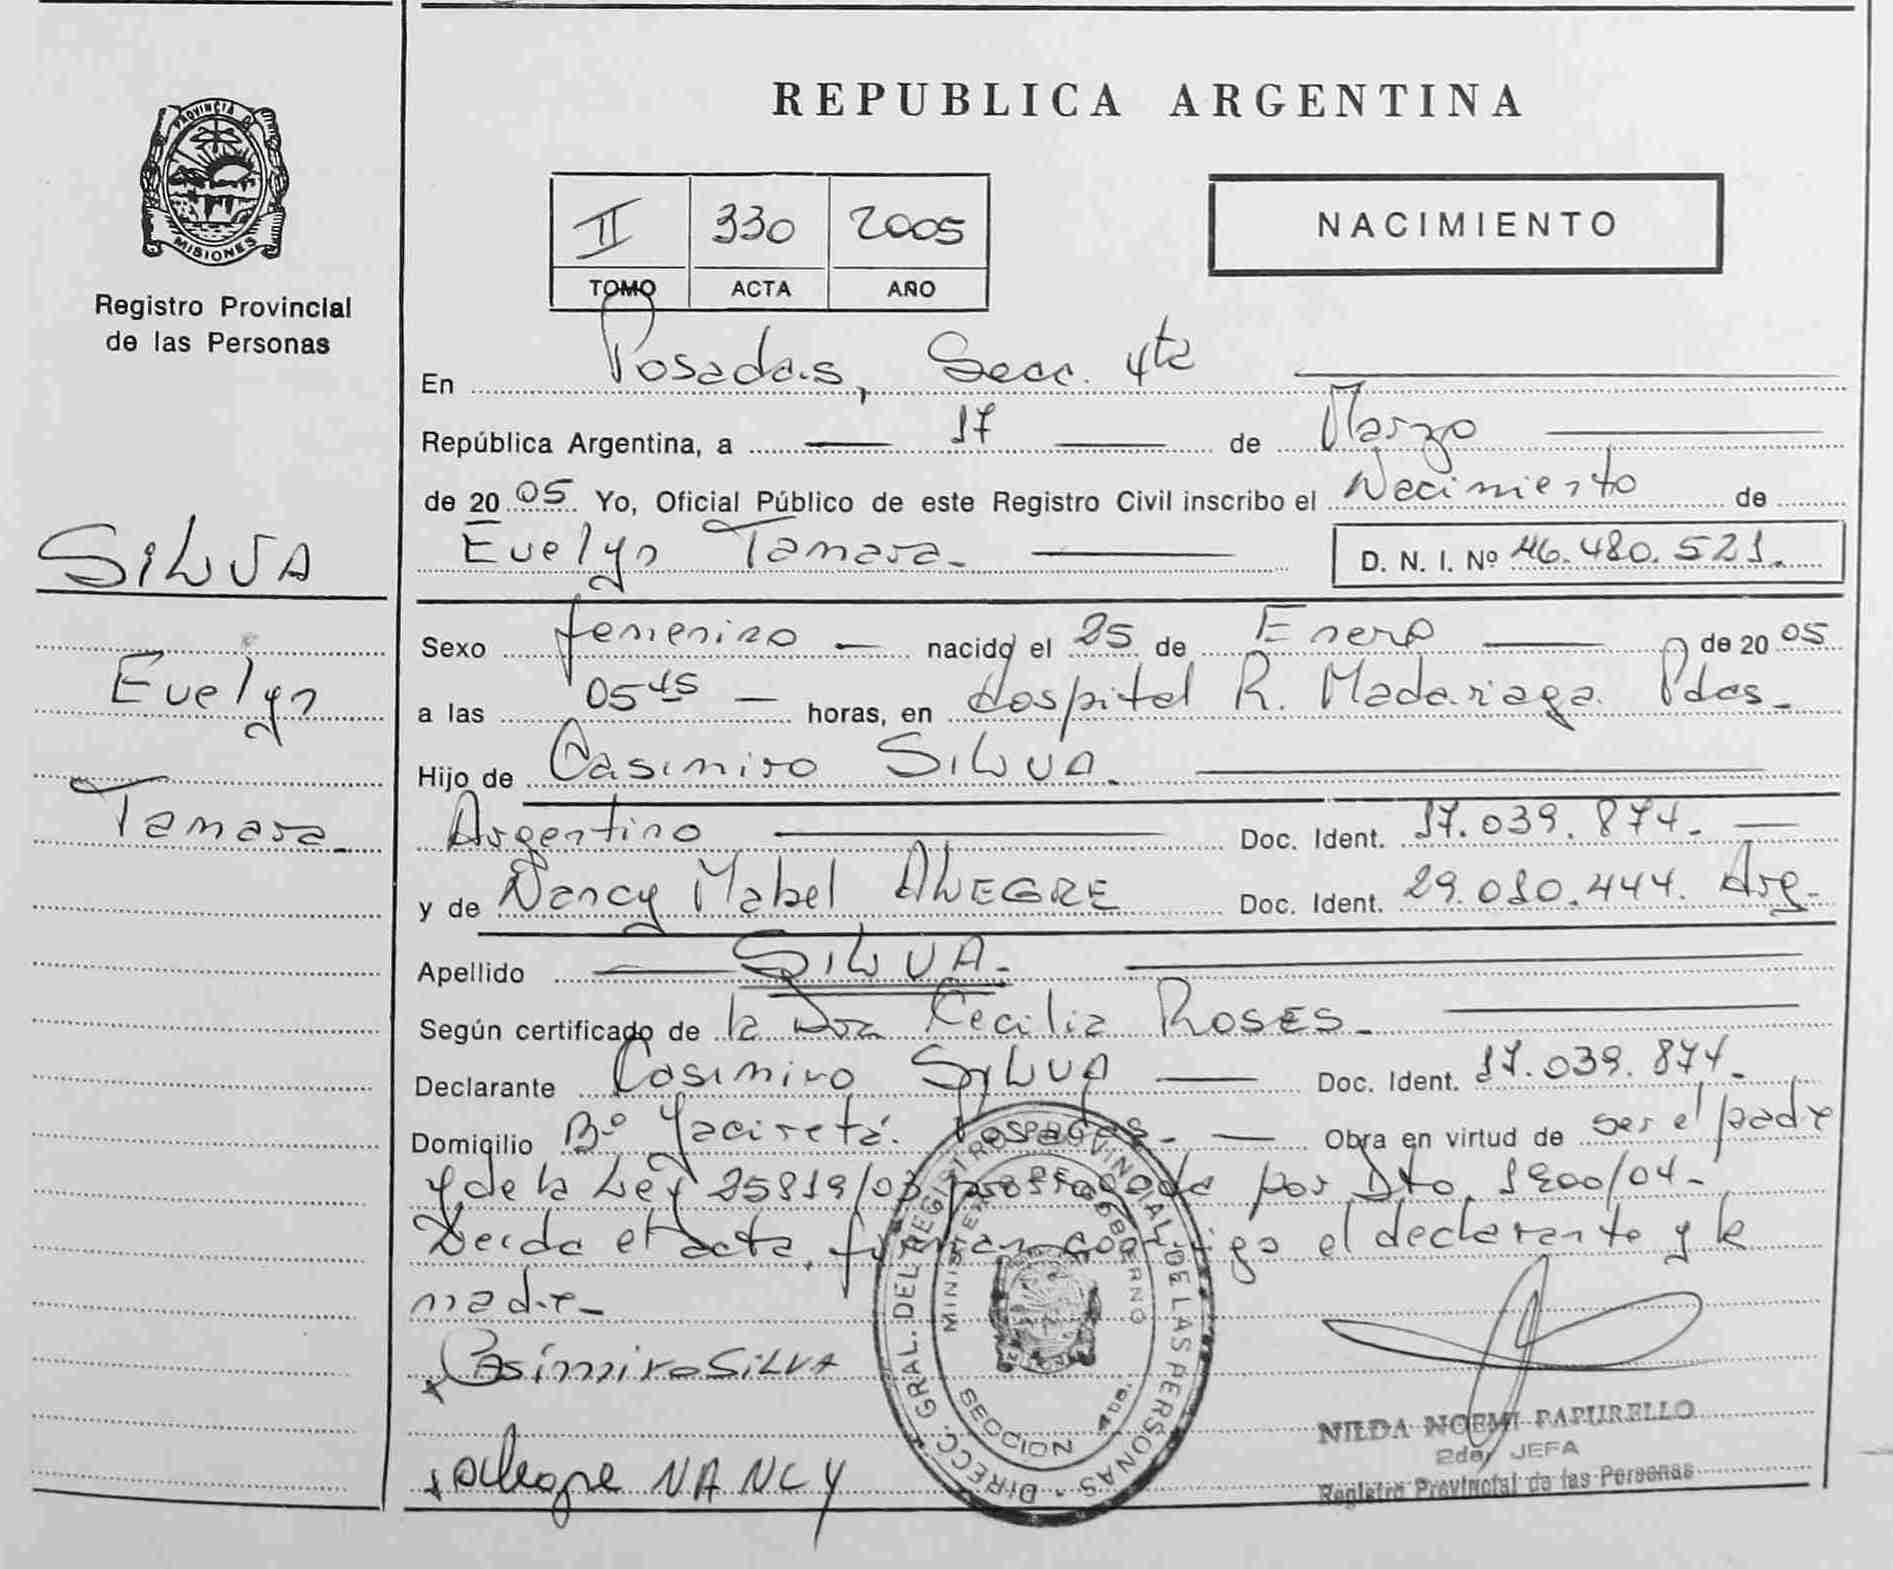 REPUBLICA ARGENTINA
PROVINCIA D
MISIONES
Registro Provincial
de las Personas
II 330 2005
TOMO ACTA AÑO
NACIMIENTO
En Posadas, Secc. 4ta
República Argentina, a 17 de Marzo
de 2005 Yo, Oficial Público de este Registro Civil inscribo el Nacimiento de
Evelyn Tamara. D. N. I. Nº 46.480.521.
SILVA
Evelyn
Tamara.
Sexo femenino nacido el 25 de Enero de 2005
a las 05 45 horas, en Hospital R. Madariaga. Pdas.
Hijo de Casimiro SILVA.
Argentino Doc. Ident. 17.039.874.
y de Nancy Mabel ALEGRE Doc. Ident. 29.010.444. Arg.
Apellido SILVA.
Según certificado de la Dra Cecilia ROSES.
Declarante Casimiro SYLVA Doc. Ident. 17.039.874.
Domicilio Bº Yaciretá. Posadas. Obra en virtud de ser el padre
y de la Ley 25819/03 prorrogada por Dto. 1900/04.
Leida el acta, firman conmigo el declarante y la
madre
Casimiro SILVA
Alegre NANCY
DIRECC. GRAL. DEL REGISTRO PROVINCIAL DE LAS PERSONAS
MINISTERIO DE GOBIERNO
SECCION 4
NILDA NOEMI PAPURELLO
2da. JEFA
Registro Provincial de las Personas